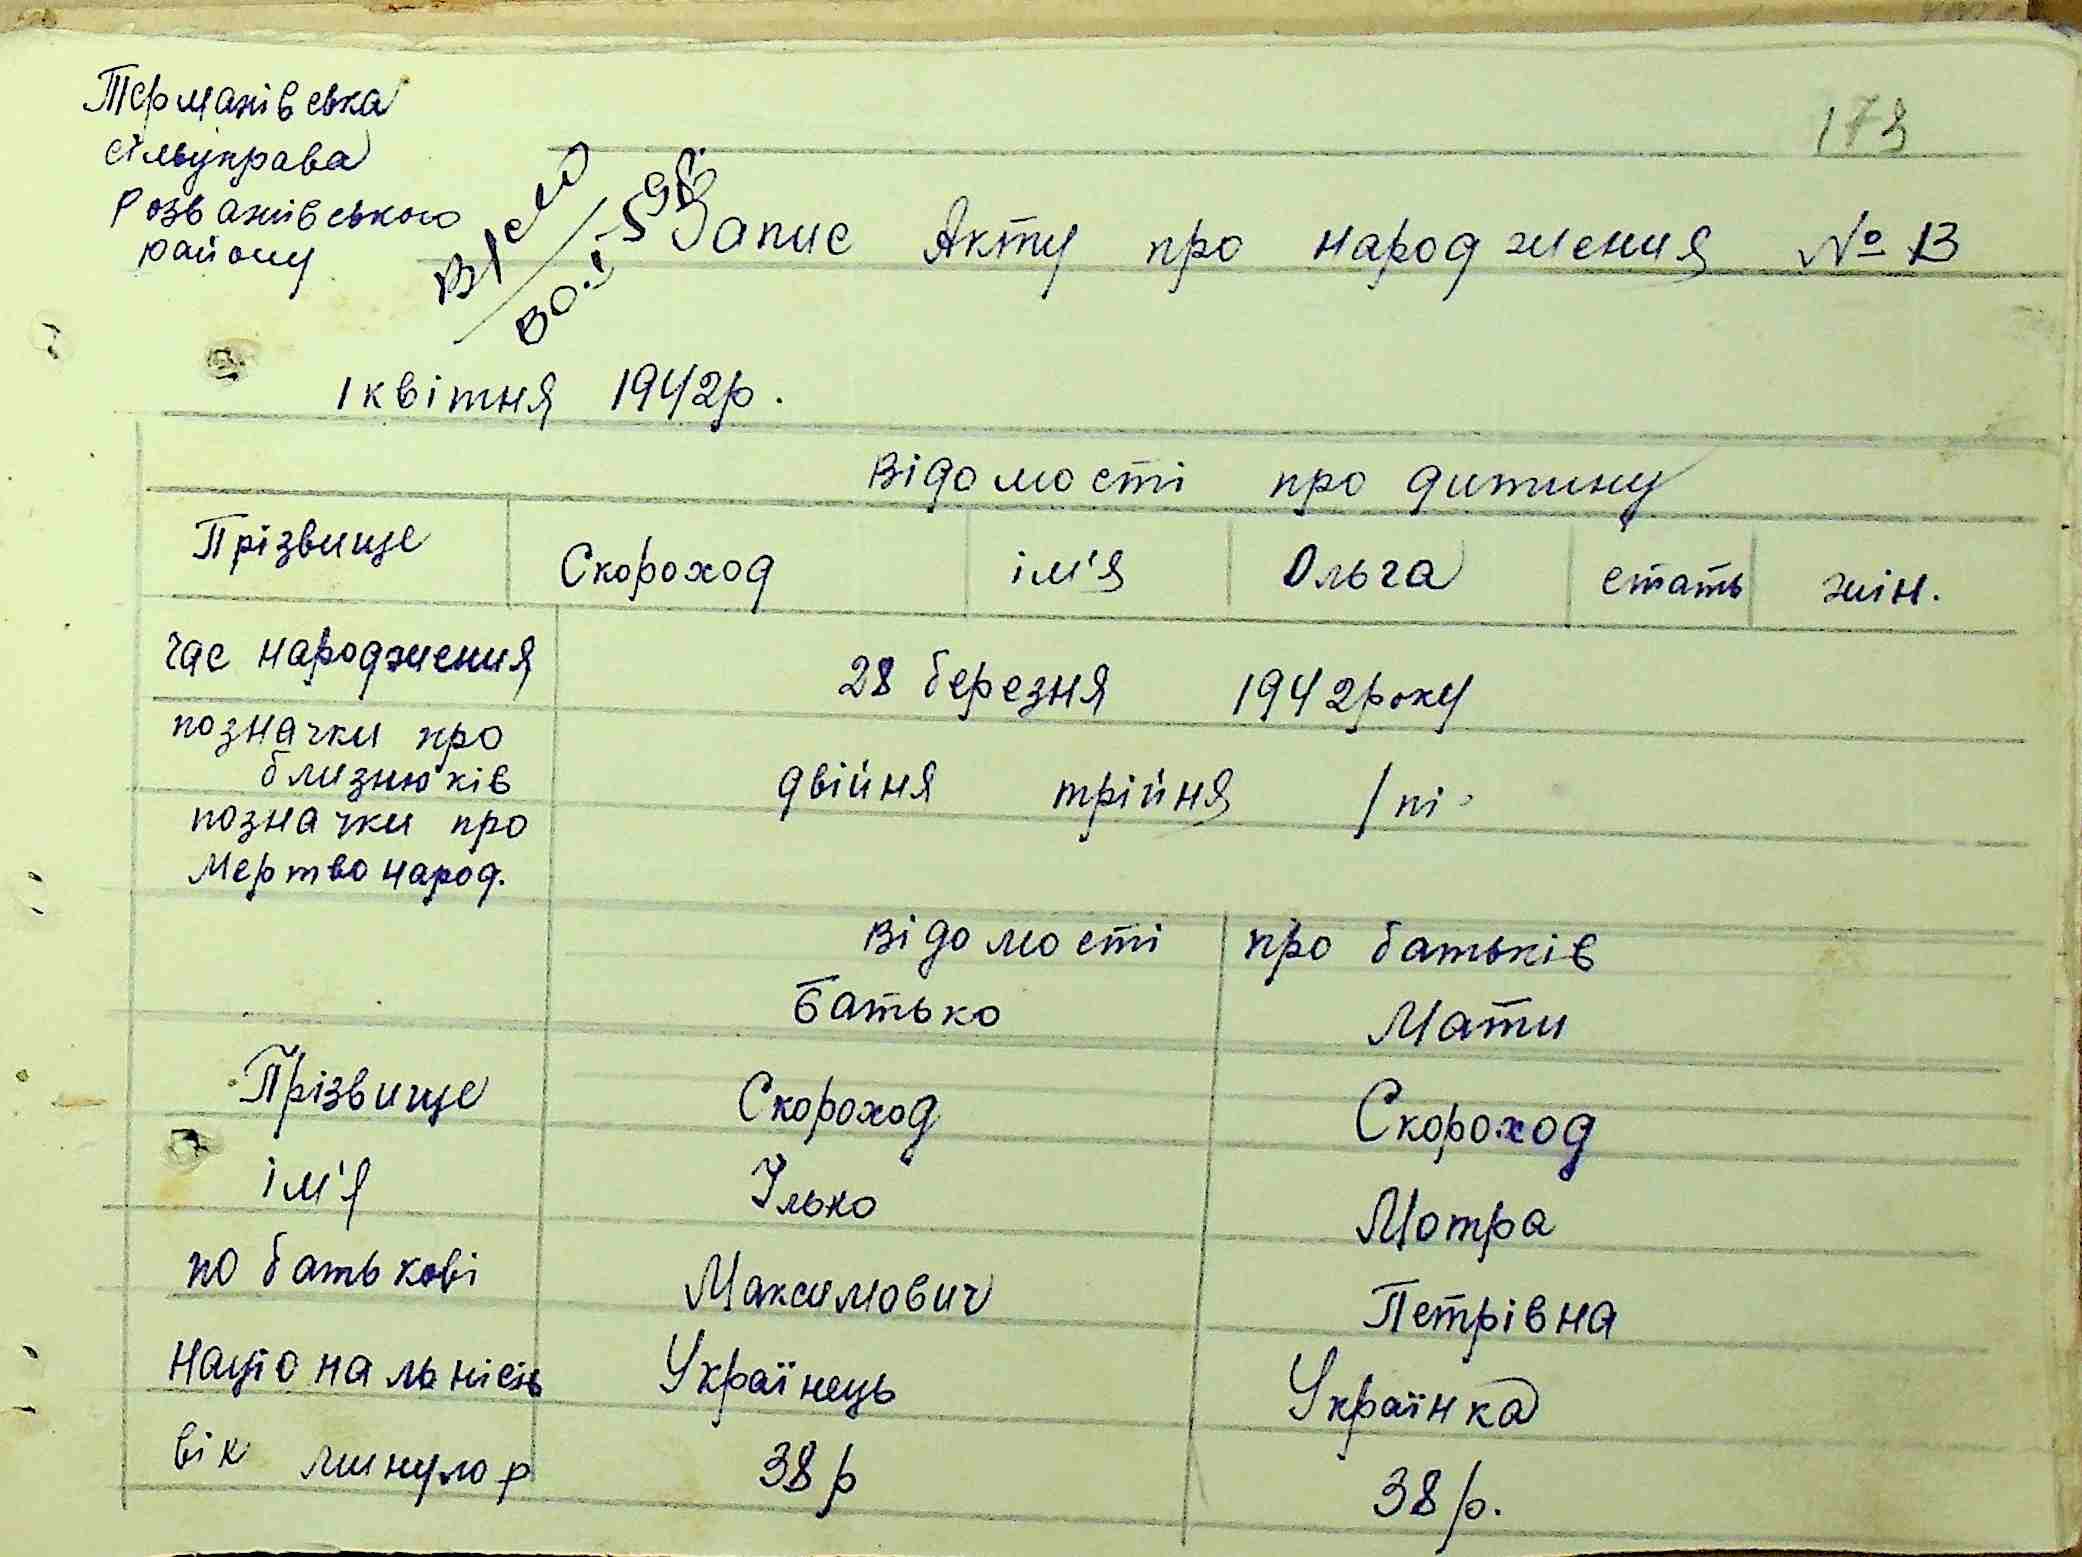 Термахівська
сільуправа
Розважівського
району
173
Запис Акту про народження № 13
1 квітня 1942р.
Відомості про дитину
Прізвище Скороход ім'я Ольга стать жін.
час народження 28 березня 1942року
позначки про
близнюків двійня трійня / ні
позначки про
мертвонарод.
Відомості про батьків
Батько Мати
Прізвище Скороход Скороход
ім'я Ілько Мотра
по батькові Максимович Петрівна
національність Українець Українка
вік минуло р 38р 38р.